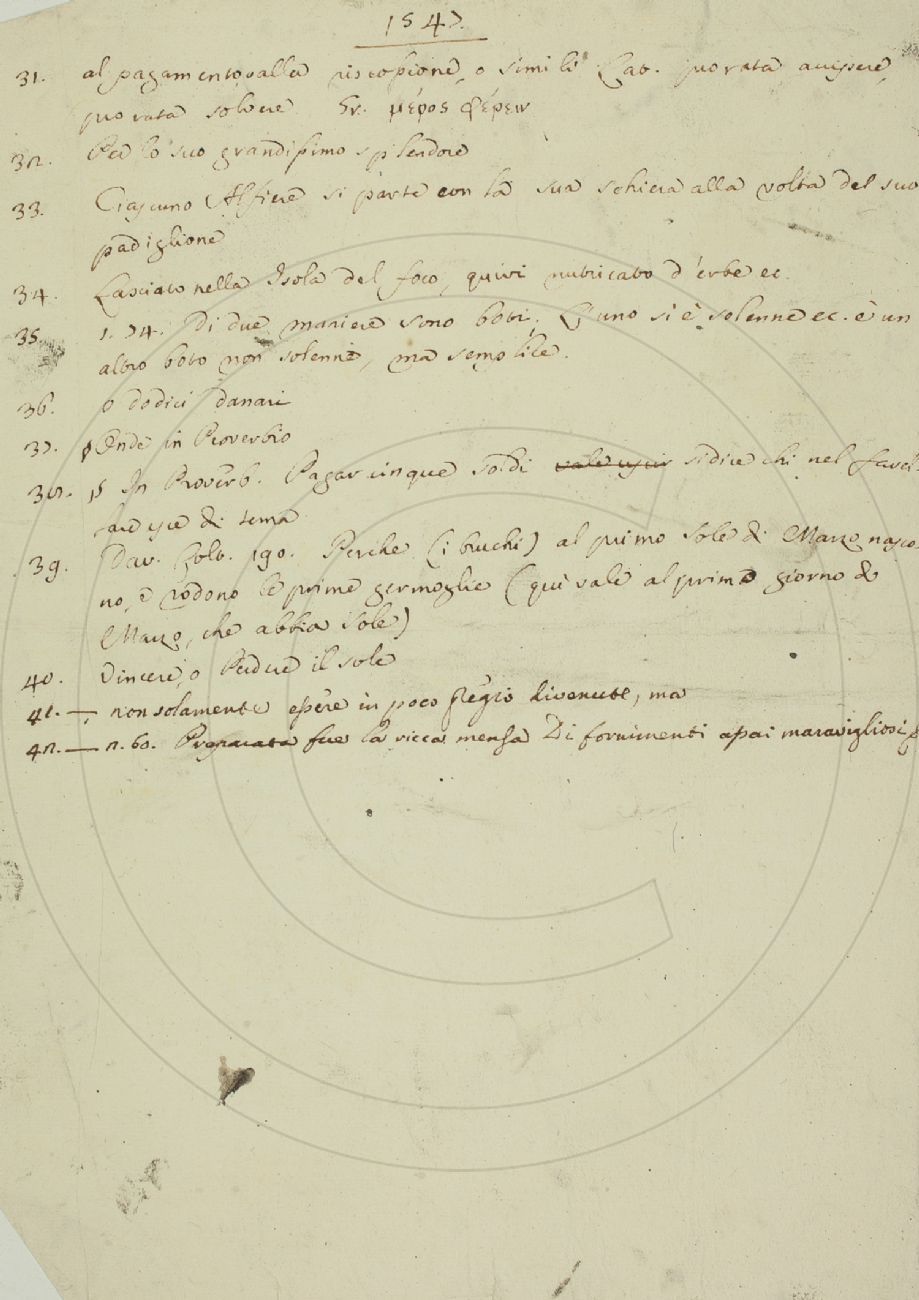 1547.
31. al pagamento, o alla riscossione, o simili Lat. pro rata
pro rata solvere Gr. μέρος φέρειν
32. Per lo suo grandissimo splendore
33. Ciascuno Alfiere si parte con la sua schiera alla volta del suo
padiglione
34. Lasciato nella Isola del foco, quivi nutricato d'erbe ec.
35. 1. 74. Di due maniere sono boti; L'uno si è solenne ec. è un
altro boto non solenne, ma semplice.
36. o dodici danari
37. § Onde in Proverbio
38. § In Proverb. Pagar cinque soldi si dice chi nel favel-
lare esce di tema
39. Dav. Colt. 190. Perche (i bruchi) al primo Sole di Marzo nasco-
no, e rodono le prime germoglie (qui vale al primo giorno di
Marzo, che abbia sole)
40. Vincere, o Perdere il sole
41. — non solamente essere in poco pregio divenute, ma
42. — 2. 60. Preparata fue la ricca mensa Di fornimenti assai maravigliosi